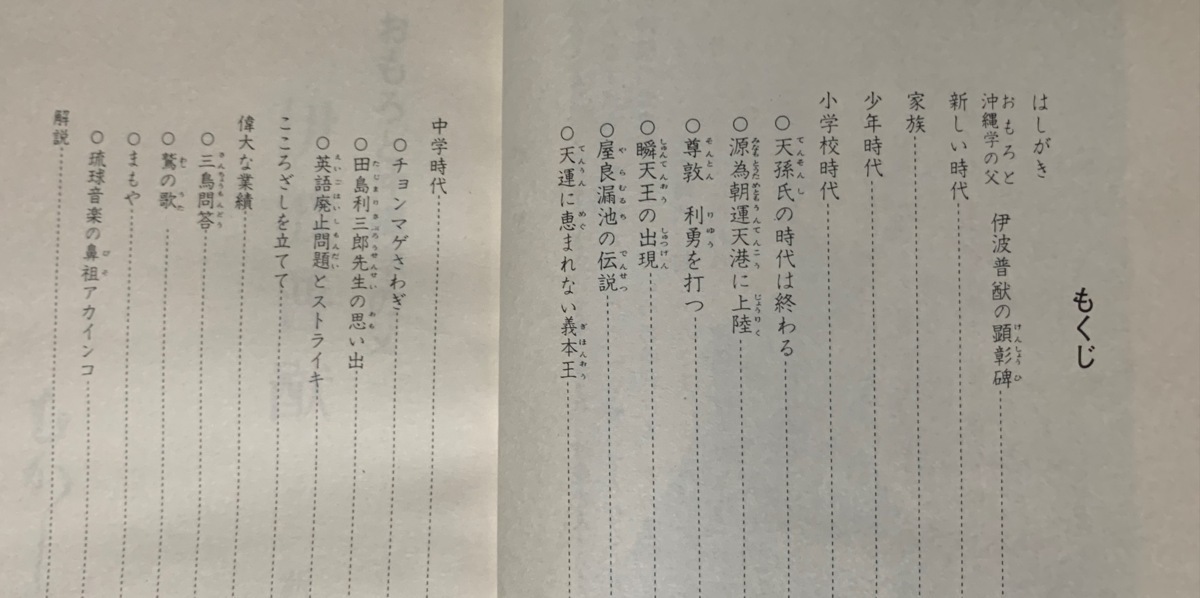 もくじ
はしがき
おもろと
沖縄学の父 伊波普猷の顕彰碑
新しい時代
家族
少年時代
小学校時代
○天孫氏の時代は終わる
○源為朝運天港に上陸
○尊敦 利勇を打つ
○瞬天王の出現
○屋良漏池の伝説
○天運に恵まれない義本王
中学時代
○チョンマゲさわぎ
○田島利三郎先生の思い出
○英語廃止問題とストライキ
こころざしを立てて
偉大な業績
○三鳥問答
○鷲の歌
○まもや
○琉球音楽の鼻祖アカインコ
解説